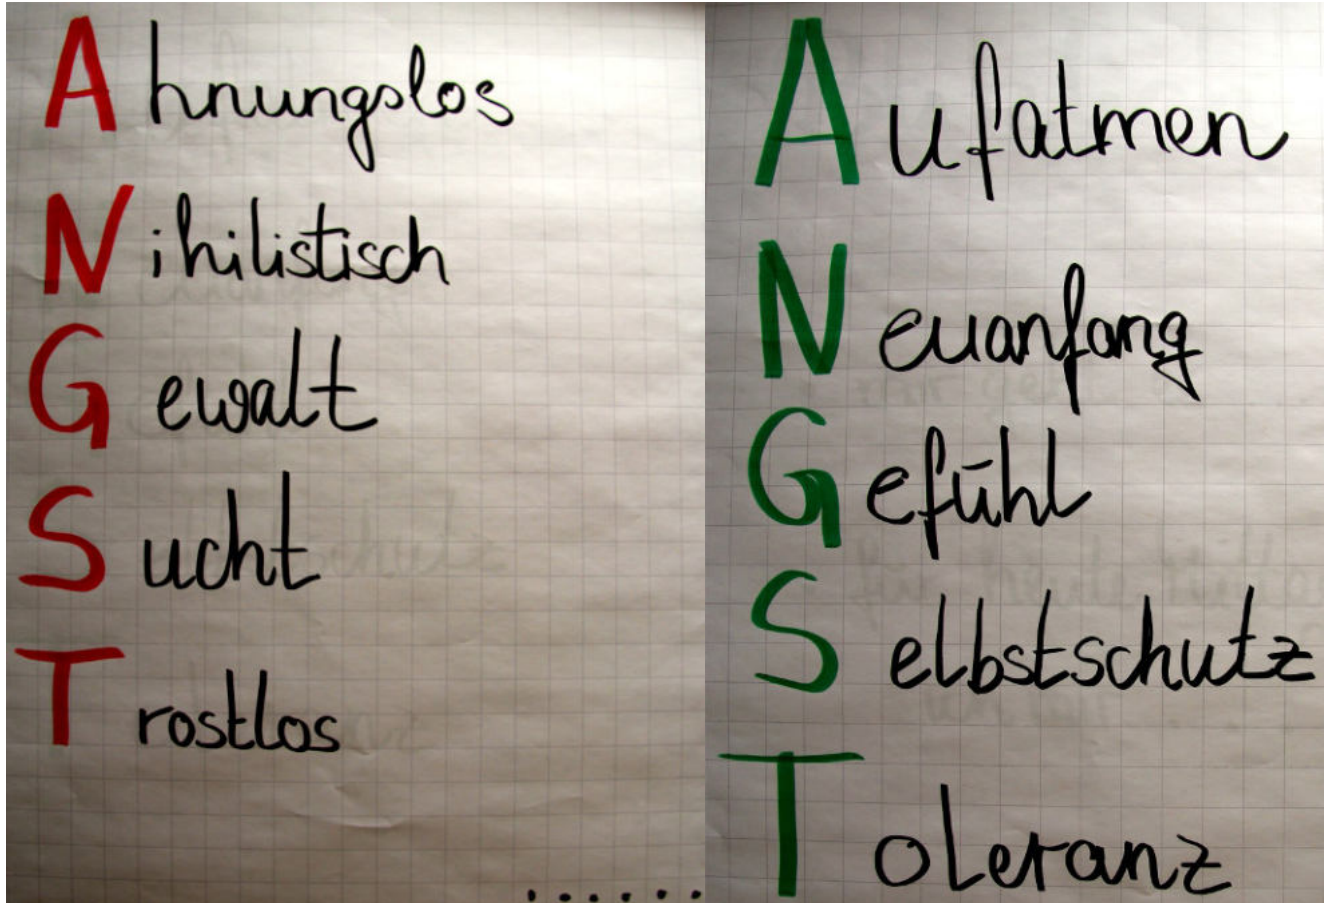 Ahnungslos
Nihilistisch
Gewalt
Sucht
Trostlos
......
Aufatmen
Neuanfang
Gefühl
Selbstschutz
Toleranz